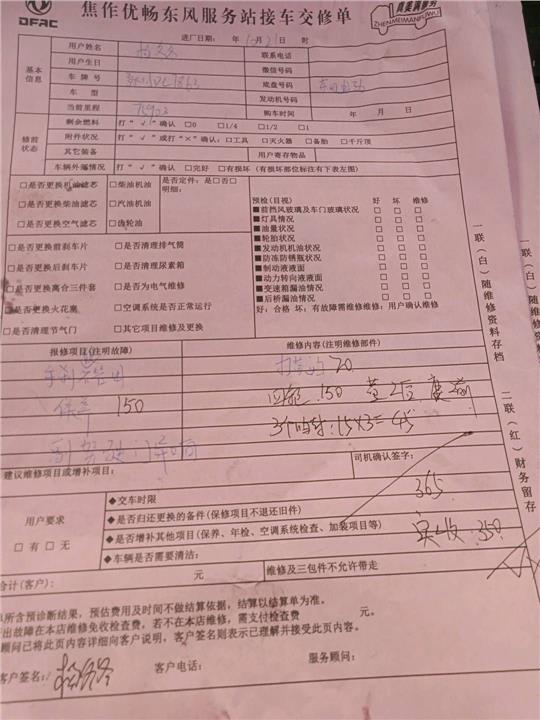 DFAC
焦作优畅东风服务站接车交修单
真美满服务
ZHENMEIMANFUWU
进厂日期: 年 月21日 时
基本信息
用户姓名
联系电话
用户生日
微信号码
车牌号
底盘号码
车型
发动机号码
当前里程
购车时间 年 月 日
修前状态
剩余燃料 打“√”确认 □0 □1/4 □1/2 □1
附件状况 打“√”或打“×”确认: □工具 □灭火器 □备胎 □千斤顶
其它装备
用户寄存物品
车辆外廓情况 打“√”确认 □完好 □有损坏(有损坏部位标注有下表左图)
□是否更换机油滤芯 □柴油机油
□是否更换柴油滤芯 □汽油机油
□是否更换空气滤芯 □齿轮油
是否定件: 是□否□
明细:
□是否更换前刹车片 □是否清理排气筒
□是否更换后刹车片 □是否清理尿素箱
□是否更换离合三件套 □是否为电气维修
□是否更换火花塞 □空调系统是否正常运行
□是否清理节气门 □其它项目维修及更换
预检(目视) 好 坏 维修
■前挡风玻璃及车门玻璃状况 □ □ □
■灯具情况 □ □ □
■油量状况 □ □ □
■轮胎状况 □ □ □
■发动机机油状况 □ □ □
■防冻防锈瓶状况 □ □ □
■制动液液面 □ □ □
■动力转向液液面 □ □ □
■变速箱漏油情况 □ □ □
■后桥漏油情况 □ □ □
好: 合格 坏: 有故障需维修维修: 用户确认维修
一联(白)随维修资料存档
二联(红)财务留存
报修项目(注明故障)
维修内容(注明维修部件)
20
150
保养 150
3个 15×3=45
建议维修项目或增补项目:
司机确认签字:
365
用户要求
□有 □无
◆交车时限
◆是否归还更换的备件(保修项目不退还旧件)
◆是否增补其他项目(保养、年检、空调系统检查、加装项目等)
◆车辆是否需要清洁:
实收: 350
合计(客户): 元
维修及三包件不允许带走
单所含预诊断结果,预估费用及时间不做结算依据,结算以结算单为准。
出故障在本店维修免收检查费,若不在本店维修,需支付检查费 元。
顾问已将此页内容详细向客户说明,客户签名则表示已理解并接受此页内容。
客户签名:
客户电话:
服务顾问: